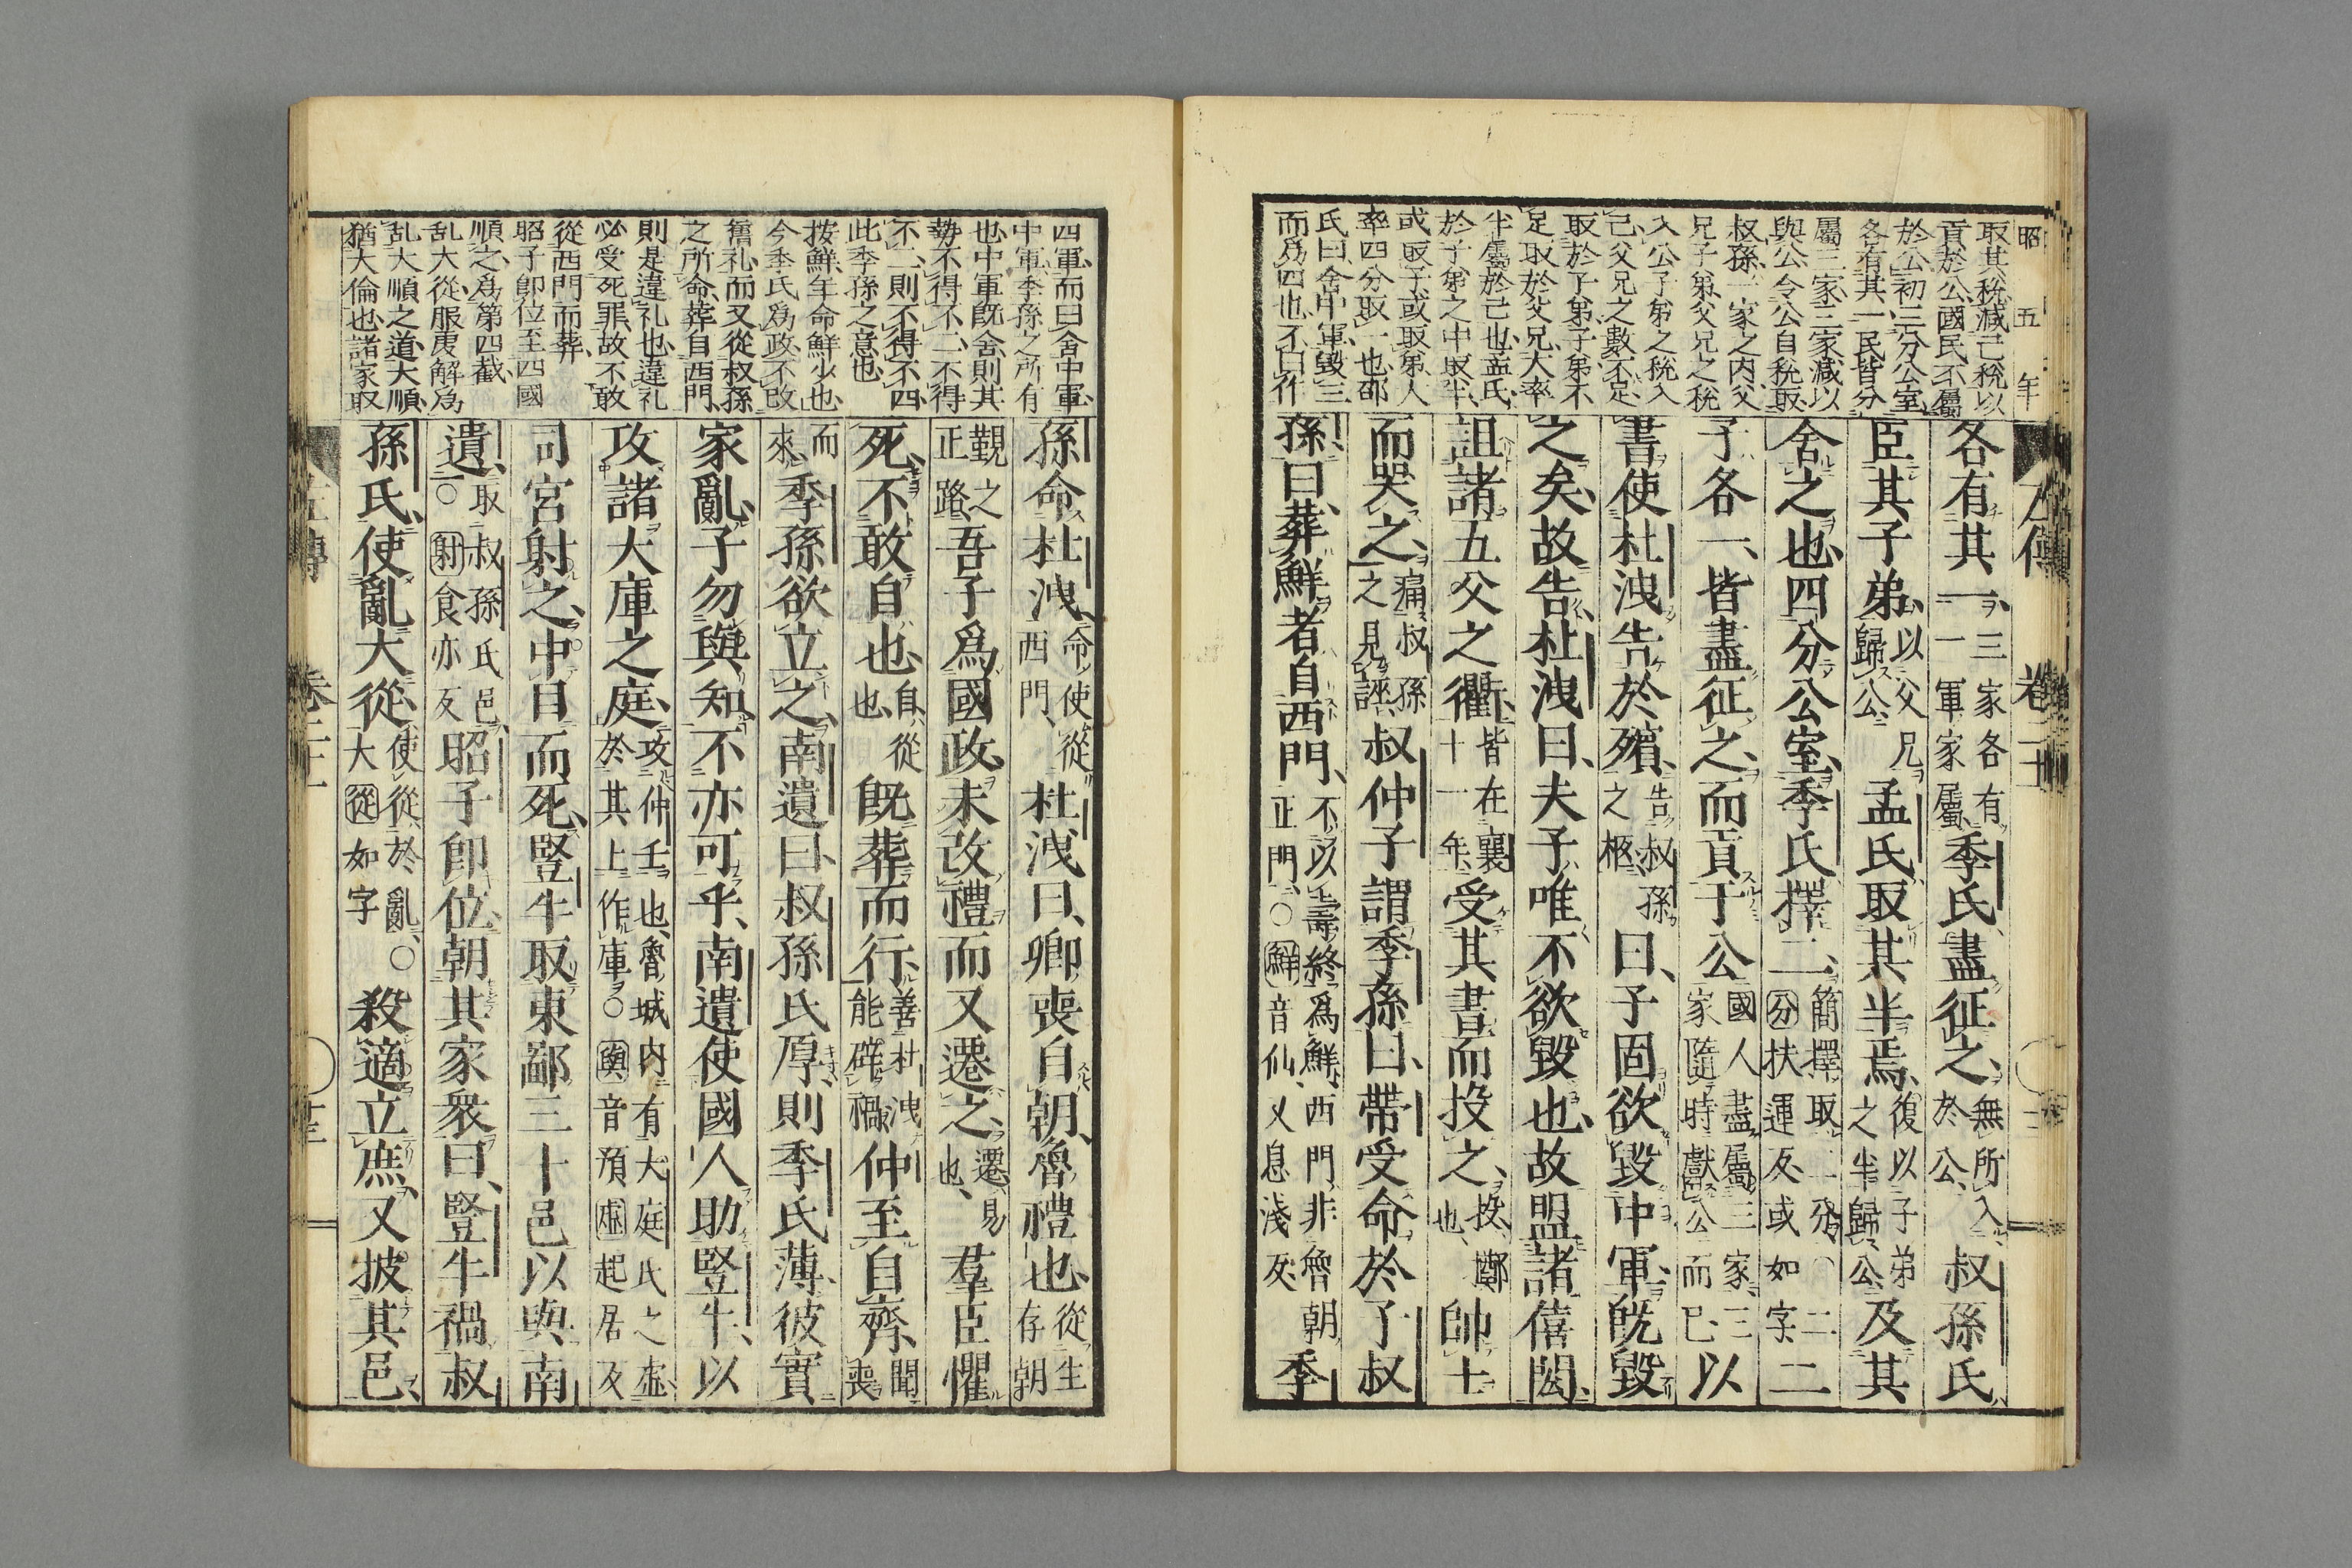 昭 五 年
取其税減己税以
貢於公國民不屬
於公初三分公室
各有其一民皆分
屬三家三家減以
與公令公自税取
叔孫一家之内父
兄子弟父兄之税
入公子弟之税入
己父兄之數不足
取於子弟子弟不
足取於父兄大率
半屬於己也孟氏
於子弟之中取半
或取子或取弟人
率四分取一也邵
氏曰舍中軍毀三
而爲四也不曰作
左傳 卷二十一
各有其一三家各有一軍家屬季氏盡征之無所入於公叔孫氏
臣其子弟以父兄歸公孟氏取其半焉復以子弟之半歸公及其
舍之也四分公室季氏擇二簡擇取二分○分扶運反或如字二二
子各一皆盡征之而貢于公國人盡屬三家三家隨時獻公而已以
書使杜洩告於殯告叔孫之柩曰子固欲毀中軍既毀
之矣故告杜洩曰夫子唯不欲毀也故盟諸僖閎
詛諸五父之衢皆在襄十一年受其書而投之投擲也帥士
而哭之痛叔孫之見誣叔仲子謂季孫曰帶受命於子叔
孫曰葬鮮者自西門不以壽終爲鮮西門非魯朝正門○鮮音仙又息淺反季
四軍而曰舍中軍
中軍季孫之所有
也中軍既舍則其
勢不得不二不得
不二則不得不四
此季孫之意也
按鮮年命鮮少也
今季氏爲政不改
舊礼而又從叔孫
之所命葬自西門
則是違礼也違礼
必受死罪故不敢
從西門而葬
昭子即位至四國
順之爲第四截
乱大從服虔解爲
乱大順之道大順
猶大倫也諸家取
孫命杜洩命使從西門杜洩曰卿喪自朝魯禮也從生存朝
覲之正路吾子爲國政未改禮而又遷之遷易也羣臣懼
死不敢自也自從也既葬而行善杜洩能辟禍仲至自齊聞喪
而來季孫欲立之南遺曰叔孫氏厚則季氏薄彼實
家亂子勿與知不亦可乎南遺使國人助豎牛以
攻諸大庫之庭攻仲壬也魯城内有大庭氏之虚於其上作庫○與音預虚起居反
司宮射之中目而死豎牛取東鄙三十邑以與南
遺取叔孫氏邑○射食亦反昭子即位朝其家衆曰豎牛禍叔
孫氏使亂大從使從於亂○大從如字殺適立庶又披其邑
左傳 卷二十一 十三